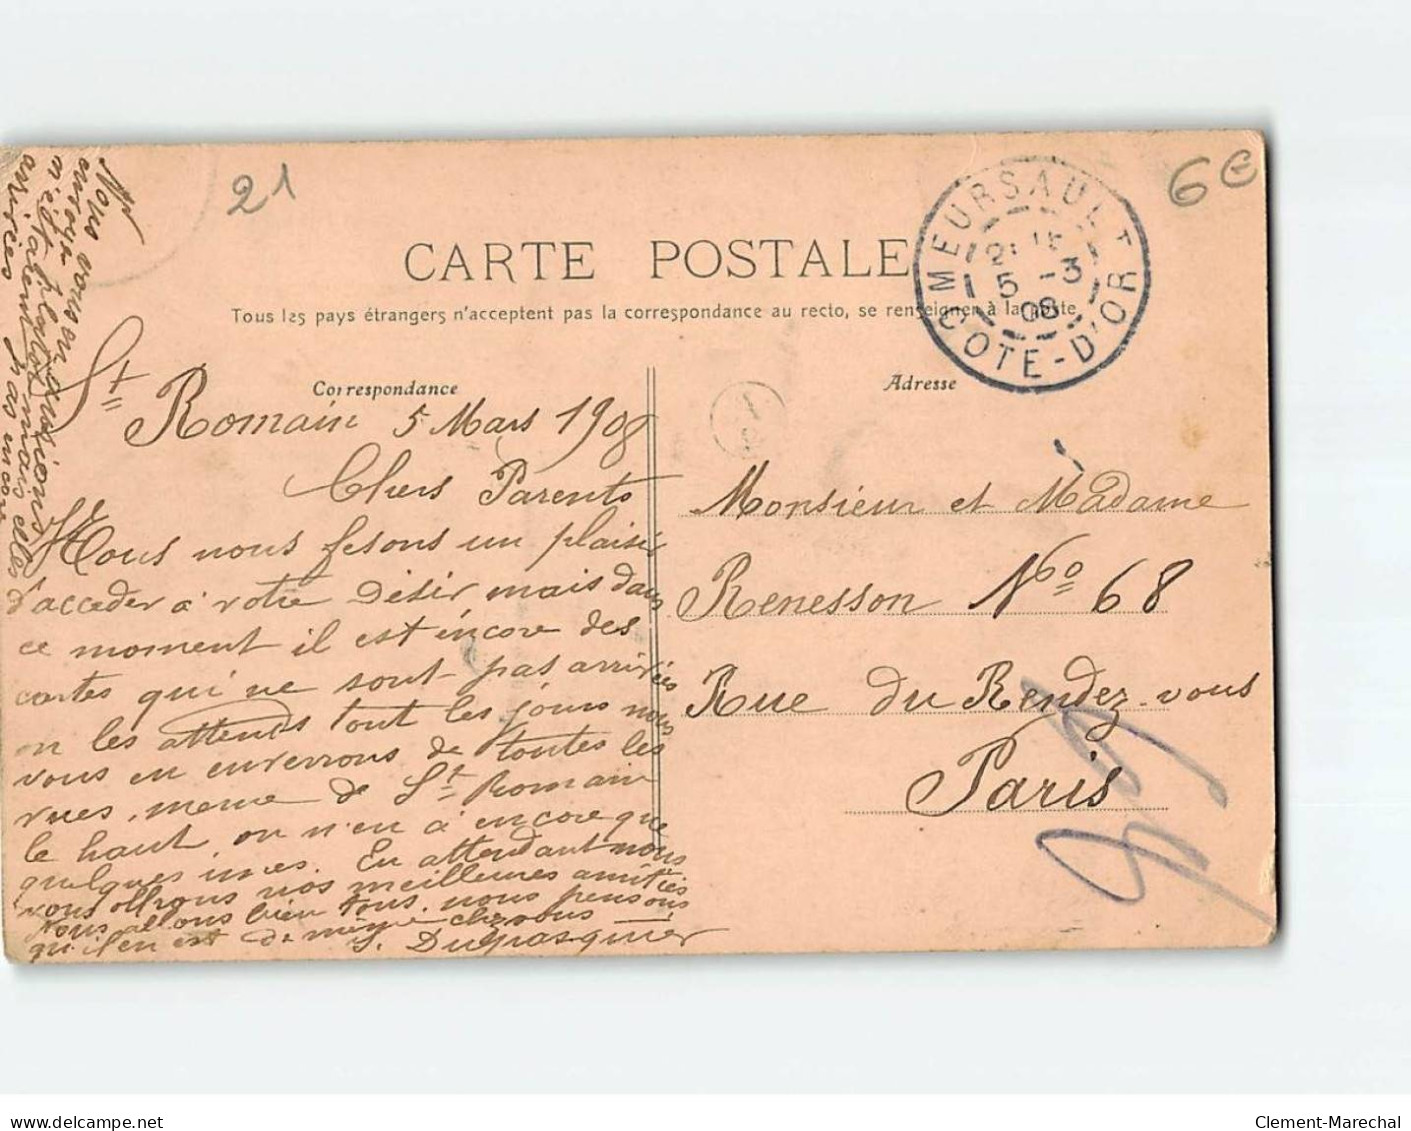 21
6€
MEURSAULT
5 -3
08
COTE-D'OR
CARTE POSTALE
Tous les pays étrangers n'acceptent pas la correspondance au recto, se renseigner à la poste
Correspondance
Adresse
St Romain 5 Mars 1908
Chers Parents
Nous nous fesons un plaisir
d'acceder à votre désir mais dans
ce moment il est encore des
cartes qui ne sont pas arrivées
on les attends tout les jours nous
vous en enverrons de toutes les
vues, meme de St Romain
le haut, on n'en à encore que
quelques unes. En attendant nous
vous offrons nos meilleures amitiés
Nous allons bien tous, nous pensons
qu'il en est de même chez vous
S. Dupasquier
Nous vous en
envoyons
arrivées
mais elles
pas encore
Monsieur et Madame
Renesson No 68
Rue du Rendez-vous
Paris
www.delcampe.net
Clement-Marechal